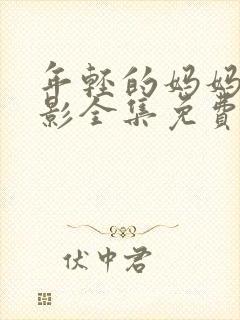 年轻的妈妈
影全集免費
伏中君